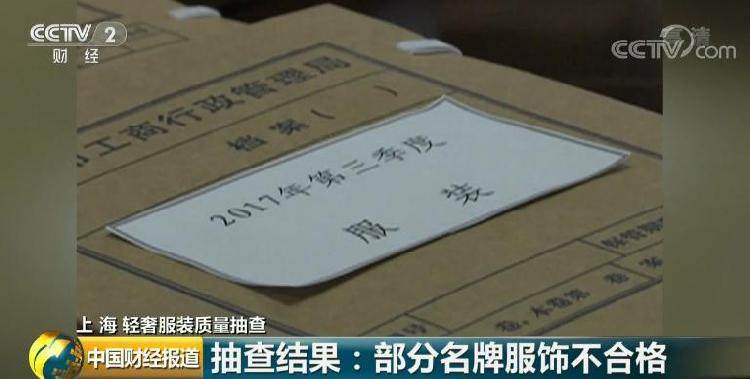 CCTV 2
财 经
高清
CCTV.com
工商行政管理局
档案( )
2017年第三季度
服 装
卷,本卷第 卷 案
号
上 海 轻奢服装质量抽查
中国财经报道
抽查结果：部分名牌服饰不合格